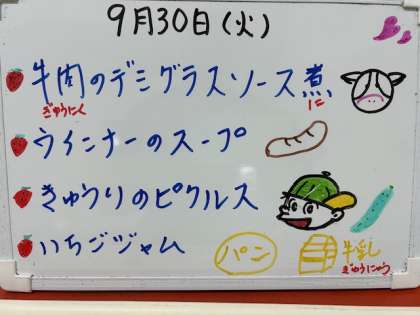 9月30日(火)
牛肉のデミグラスソース煮
ぎゅうにく
に
ウインナーのスープ
きゅうりのピクルス
いちごジャム
パン
牛乳
ぎゅうにゅう